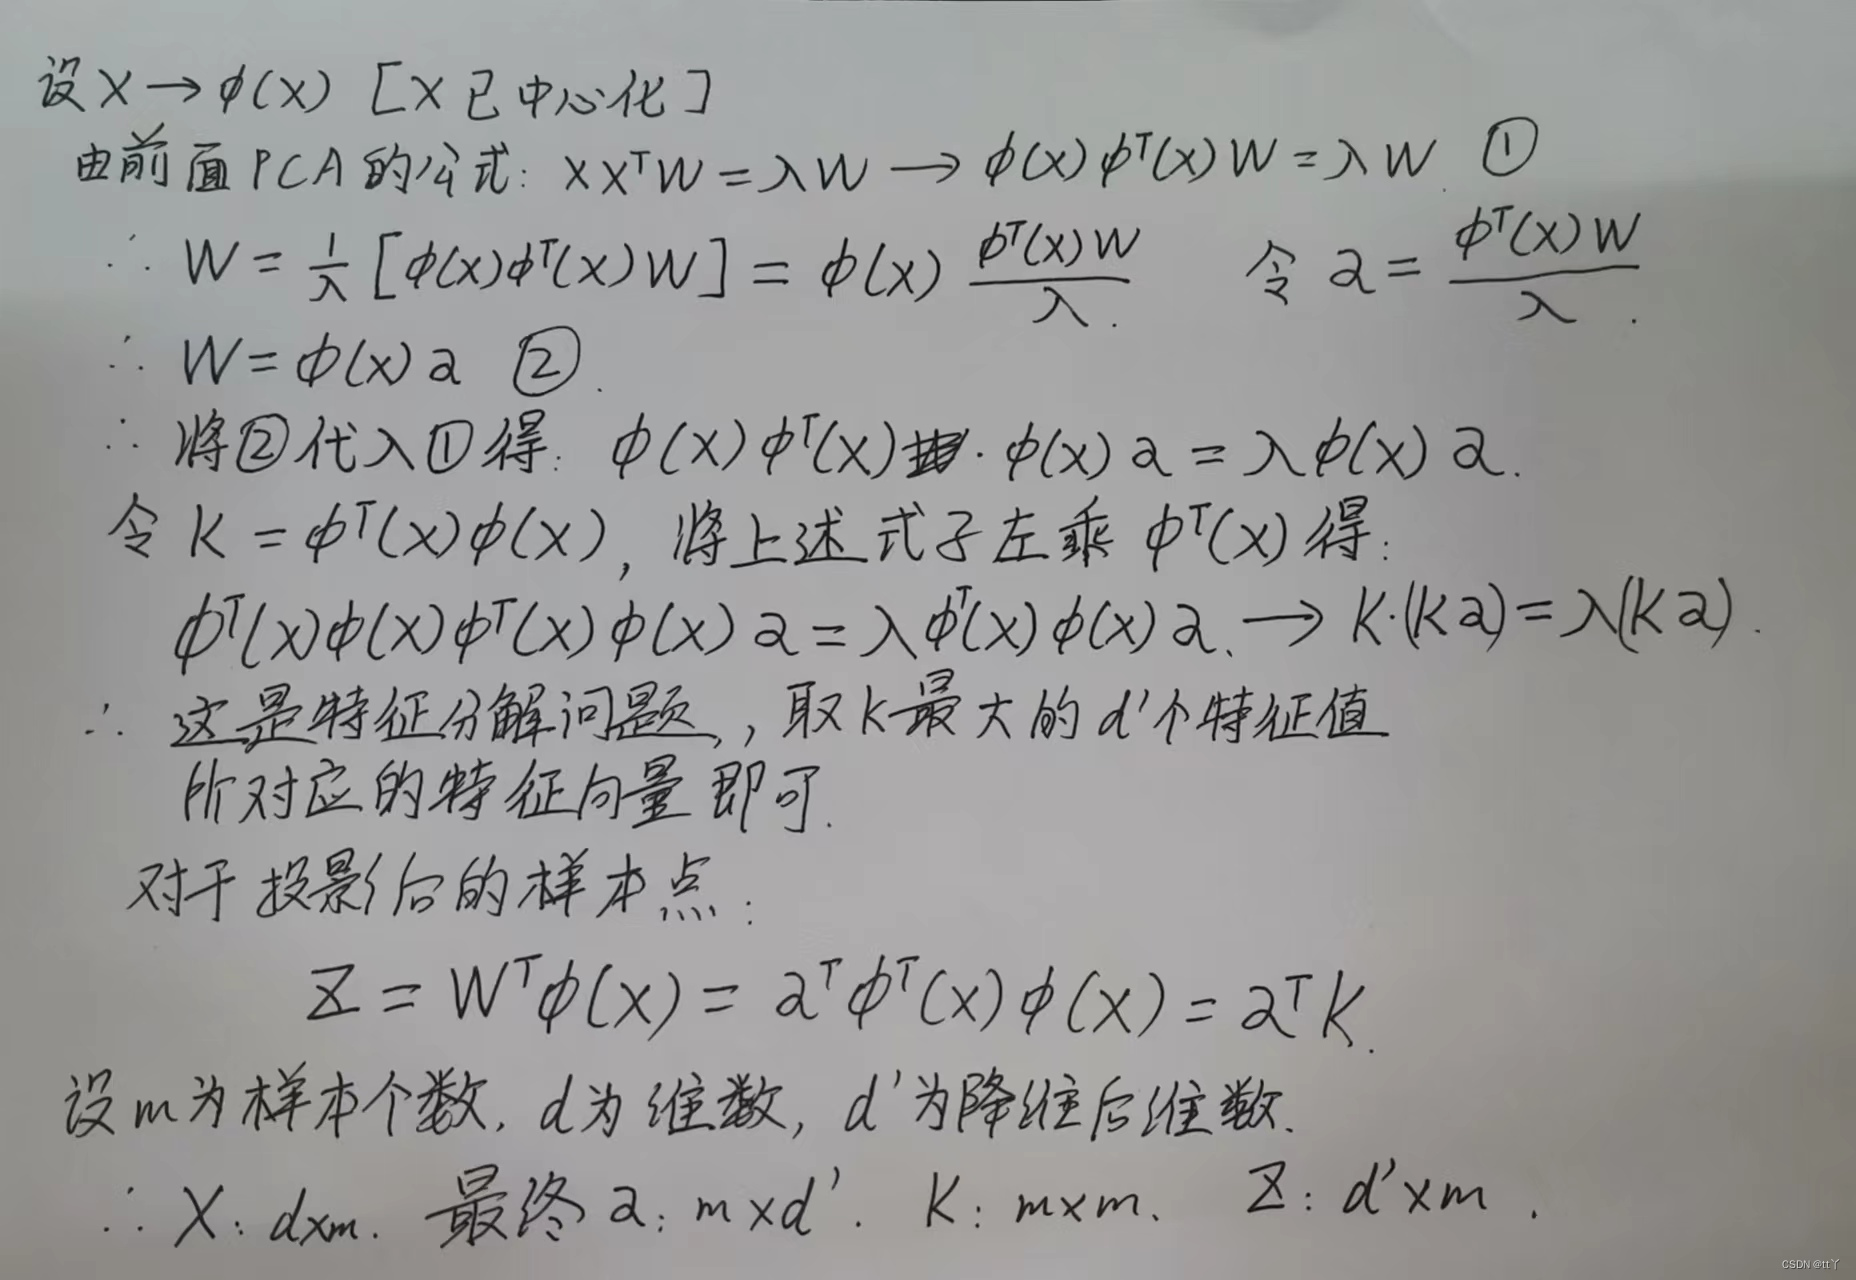 设X→φ(X) [X已中心化]
由前面PCA的公式: XXᵀW=λW → φ(X)φᵀ(X)W=λW. ①
∴ W = 1/λ [φ(X)φᵀ(X)W] = φ(X) φᵀ(X)W/λ. 令 a = φᵀ(X)W/λ.
∴ W=φ(X)a ②.
∴ 将②代入①得: φ(X)φᵀ(X)·φ(X)a=λφ(X)a.
令 K=φᵀ(X)φ(X), 将上述式子左乘 φᵀ(X)得:
φᵀ(X)φ(X)φᵀ(X)φ(X)a=λφᵀ(X)φ(X)a. → K·(Ka)=λ(Ka).
∴ 这是特征分解问题, 取K最大的d'个特征值
所对应的特征向量即可.
对于投影后的样本点:
Z=Wᵀφ(X)=aᵀφᵀ(X)φ(X)=aᵀK.
设m为样本个数, d为维数, d'为降维后维数.
∴ X: d×m. 最终a: m×d'. K: m×m. Z: d'×m.
CSDN @tt丫